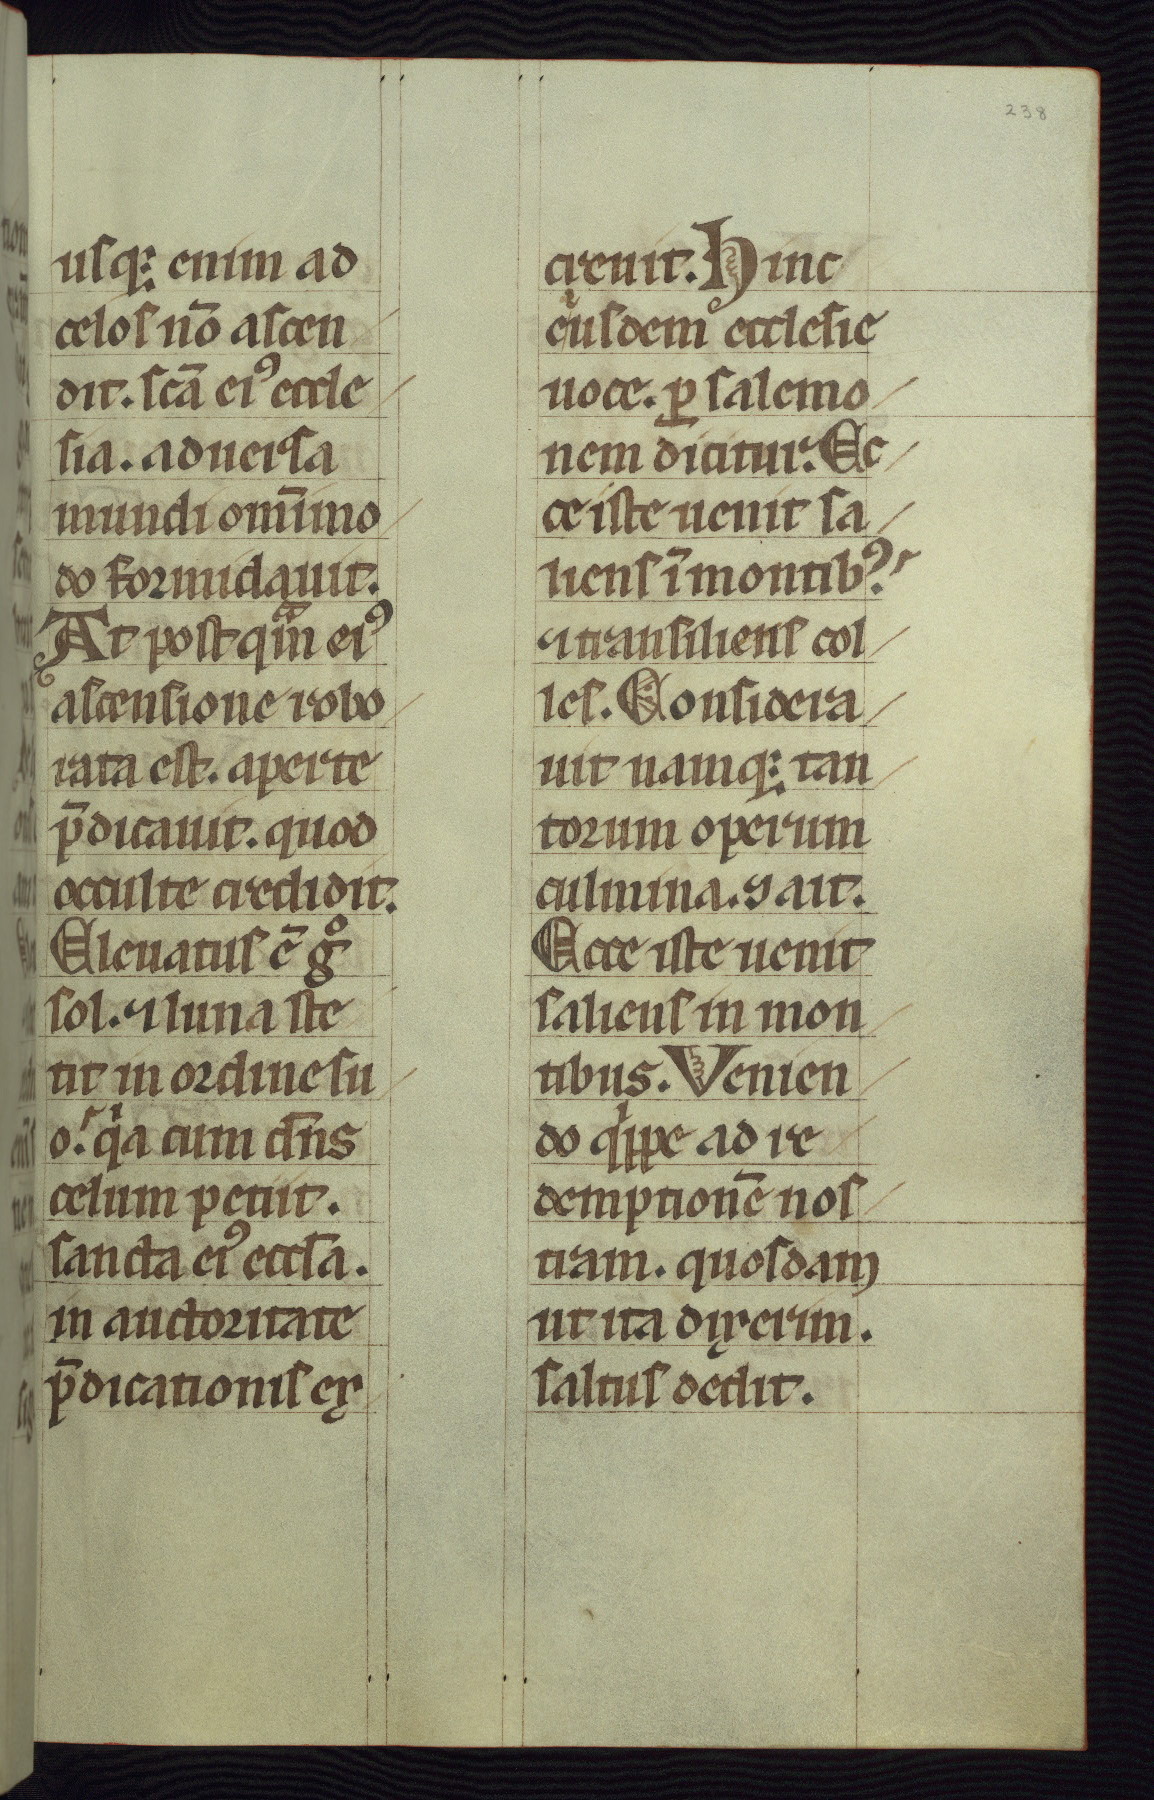 238
usqꝫ enim ad
celos nō ascen
dit. scā ei⁹ eccle
sia. aduersa
mundi om̄imo
do formidauit.
At postqͣm ei⁹
ascensione robo
rata est. aperte
p̄dicauit. quod
occulte credidit.
Eleuatus ē gͦ
sol. ⁊ luna ste
tit in ordine su
o. qͥa cum dn̄s
celum petiit.
sancta ei⁹ eccl̄a.
in auctoritate
p̄dicationis ex
creuit. Hinc
eiusdem ecclesie
uoce. ꝑ salemo
nem dicitur. Ec
ce iste uenit sa
liens ī montib⁹.
⁊ transiliens col
les. Considera
uit namqꝫ tan
torum operum
culmina. ⁊ ait.
Ecce iste uenit
saliens in mon
tibus. Venien
do qͥppe ad re
demptionē nos
tram. quosdam
ut ita dixerim.
saltus dedit.